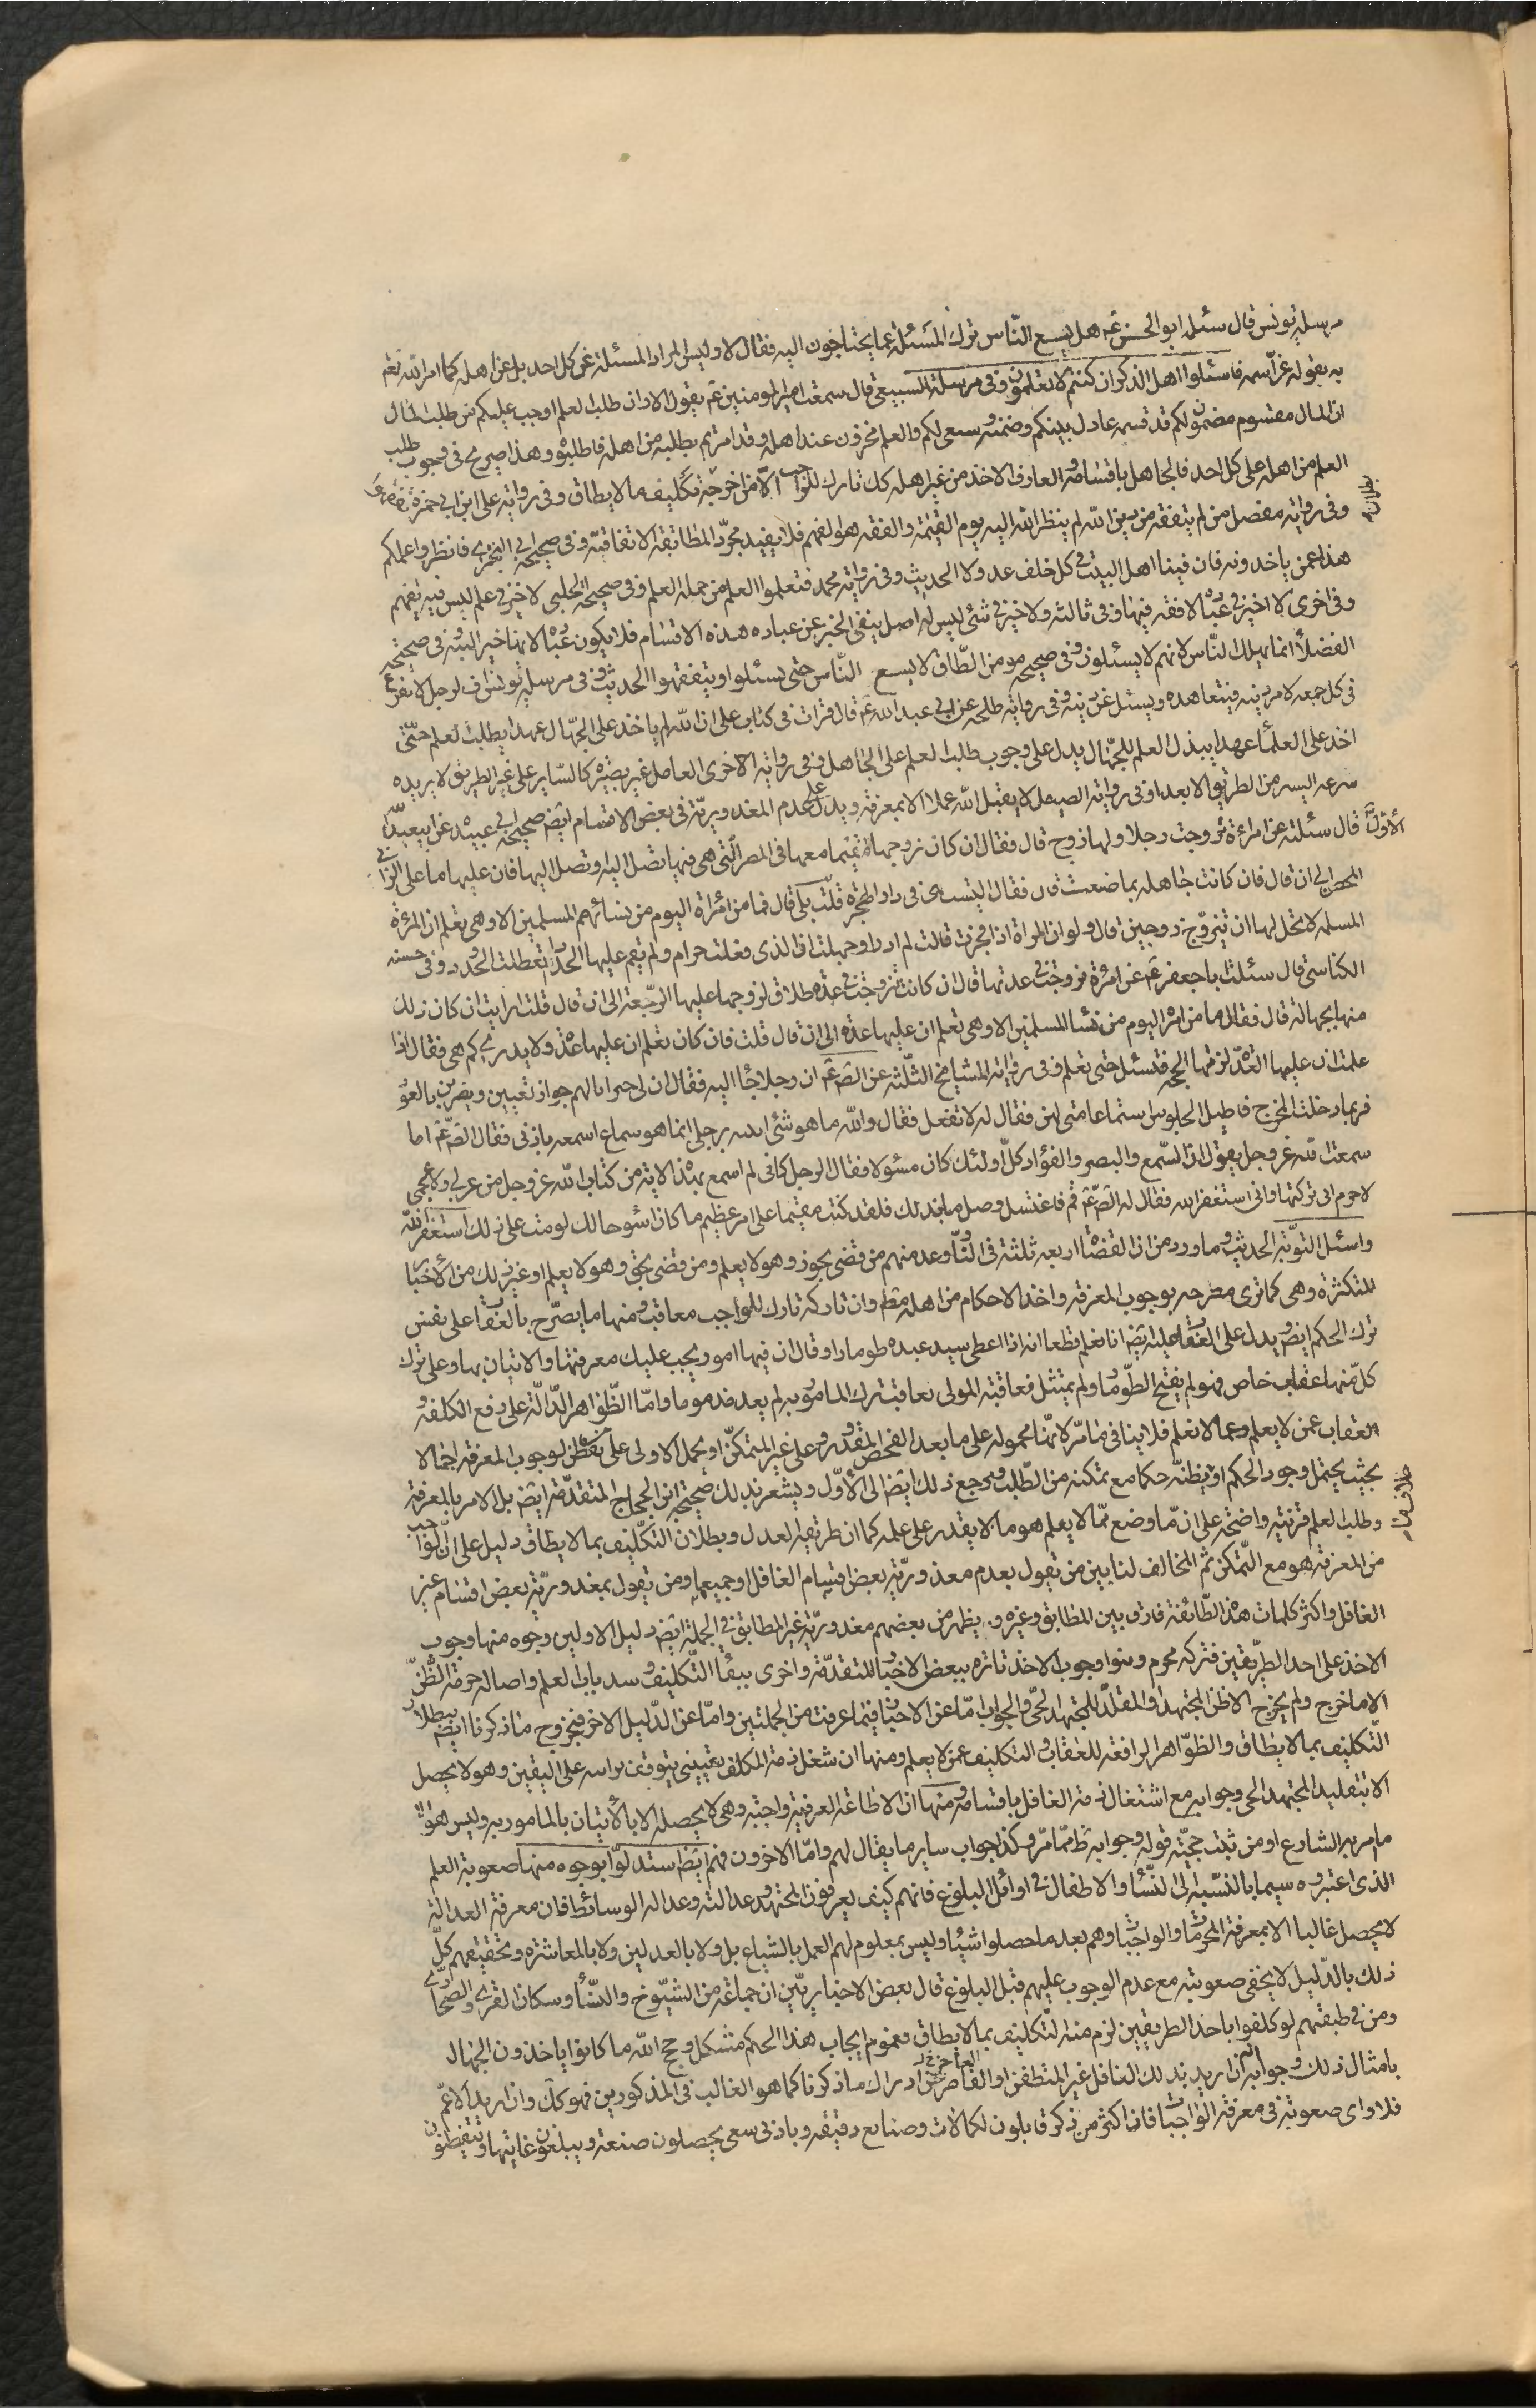 مرسلة يونس قال سئله ابو الحسن عم هل يسع الناس ترك المسئلة عما يحتاجون اليه فقال لا وليس المراد المسئلة عن كل احد بل عن اهله كما امر الله تعم
به بقوله عز اسمه فاسئلوا اهل الذكر ان كنتم لا تعلمون وفي مرسلة السبيعي قال سمعت امير المومنين عم يقول الا وان طلب العلم اوجب عليكم من طلب المال
ان المال مقسوم مضمون لكم قد قسمه عادل بينكم وضمنه وسيفى لكم والعلم مخزون عند اهله وقد امرتم بطلبه من اهله فاطلبوه وهذا صريح في وجوب طلب
العلم من اهله على كل احد فالجاهل باقسامه والعارف الاخذ من غير اهله كل تارك للواجب الا من اخرجه تكليف ما لا يطاق وفي رواية علي ابن ابي حمزة
وفي رواية مفضل من لم يتفقه من دين الله لم ينظر الله اليه يوم القيمة والفقه هو الفهم فلا يفيد مجرد المطابقة الاتفاقية وفي صحيحة ابي البختري فانظروا علمكم
هذا عمن ياخذونه فان فينا اهل البيت في كل خلف عدولا الحديث وفي رواية محمد فتعلموا العلم من حملة العلم وفي صحيحة الحلبي لا خير في علم ليس فيه تفهم
وفي اخرى لا خير في عبادة لا فقه فيها وفي ثالثه ولا خير في شئ ليس له اصل ينفي الخبر عن عباده هذه الاقسام فلا يكون عبادة لانها خير البتة في صحيحة
الفضلاء انما يهلك الناس لانهم لا يسئلون وفي صحيحه مومن الطاق لا يسع الناس حتى يسئلوا ويتفقهوا الحديث وفي مرسلة يونس اف لرجل لا يفرغ
في كل جمعه لامر دينه فيتعاهده ويسئل عن دينه وفي رواية طلحه عن ابي عبد الله عم قال قرات في كتاب علي ان الله لم ياخذ على الجهال عهدا بطلب العلم حتى
اخذ على العلماء عهدا ببذل العلم للجهال يدل على وجوب طلب العلم على الجاهل وفي رواية الاخرى العامل غير بصيره كالساير على غير الطريق لا يزيده
سرعه السير من الطريق الا بعدا وفي رواية الصيقل لا يقبل الله عملا الا بمعرفة ويدل على عدم المعذورية في بعض الاقسام ايض صحيحة ابي عبيده عن ابيعبد الله
قال سئلته عن امراءة تزوجت رجلا ولها زوج قال فقال ان كان زوجها مقيما معها في المصر التي هي فيها تصل اليه وتصل اليها فان عليها ما على الزاني
المحصن الى ان قال فان كانت جاهله بما صنعت قال فقال اليست هي في دار الهجرة قلت بلى قال فما من امراة اليوم من نساءهم المسلمين الا وهي تعلم ان المرئة
المسلمه لا تحل لها ان تتزوج زوجين قال ولو ان المراة اذا فجرت قالت لم ادر او جهلت ان الذي فعلت حرام ولم يقم عليها الحد اذا لتعطلت الحدود وفي حسنه
الكناسي قال سئلت باجعفر عم عن امرئة تزوجت في عدتها قال ان كانت تزوجت في عدة طلاق لزوجها عليها الرجعة الى ان قال قلت ارايت ان كان ذلك
منها بجهالة قال فقال ما من امراة اليوم من نساء المسلمين الا وهي تعلم ان عليها عدة الى ان قال قلت فان كان تعلم ان عليها عدة ولا يدري كم هي فقال اذا
علمت ان عليها العدة لزمتها الحجة فتسئل حتى تعلم وفي رواية المشايخ الثلثة عن الص عم ان رجلا جاء اليه فقال ان لي جيرانا لهم جوار تغنين ويضربن بالعود
فربما دخلت المخرج فاطيل الجلوس استماعا مني لهن فقال له لا تفعل فقال والله ما هو شئ اتيه برجلي انما هو سماع اسمعه باذني فقال الص عم اما
سمعت الله عز وجل يقول ان السمع والبصر والفؤاد كل اولئك كان مسئولا فقال الرجل كاني لم اسمع بهذه الاية من كتاب الله عز وجل من عربي ولا عجمي
لا جرم اني تركتها واني استغفر الله فقال له الص عم قم فاغتسل وصل ما بدا لك فلقد كنت مقيما على امر عظيم ما كان اسوء حالك لو مت على ذلك استغفر الله
واسئل التوبة الحديث وما ورد من ان القضاة اربعه ثلثة في النار وعد منهم من قضى بجور وهو لا يعلم ومن قضى بحق وهو لا يعلم او غير ذلك من الاخبار
المتكثرة وهي كما ترى مصرحه بوجوب المعرفه واخذ الاحكام من اهله مط وان تاركه تارك للواجب معاقب ومنها ما يصرح بالعقاب على نفس
ترك الحكم ايض ويدل على العقاب عليه ايض انا نعلم قطعا انه اذا اعطى سيد عبده طومارا وقال ان فيها امور يجب عليك معرفتها والاتيان بها وعلى ترك
كل منها عقاب خاص فهو لم يفتح الطومار ولم يمتثل فعاقبه المولى بعاقبة ترك المامور به لم يعد مذموما واما الظواهر الدالة على رفع الكلفه و
العقاب عمن لا يعلم وعما لا تعلم فلا ينافي ما مر لانها محموله على ما بعد الفحص المقدور وعلى غير المتمكن او يحمل الاولى على من لم يتفطن لوجوب المعرفة اجمالا
بحيث يحتمل وجود الحكم او يظنه حكما مع تمكنه من الطلب ويرجع ذلك ايض الى الاول ويشعر بذلك صحيحة ابن الحجاج المتقدمة ايض بل الامر بالمعرفة
وطلب العلم قرينة واضحة على ان ما وضع عما لا يعلم هو ما لا يقدر على علمه كما ان طريقة العدل وبطلان التكليف بما لا يطاق دليل على ان الواجب
من المعرفة هو مع التمكن ثم المخالف لنا بين من يقول بعدم معذورية بعض اقسام الغافل او جميعها ومن يقول بمعذورية بعض اقسام غير
الغافل واكثر كلمات هذه الطائفة فارق بين المطابق وغيره ويظهر من بعضهم معذورية غير المطابق في الجملة ايض دليل الاولين وجوه منها وجوب
الاخذ على احد الطريقين فتركه محرم وبنوا وجوب الاخذ تارة ببعض الاخبار المتقدمة واخرى ببقاء التكليف وسد باب العلم واصالة حرمة الظن
الا ما خرج ولم يخرج الا ظن المجتهد والمقلد للمجتهد الحي والجواب اما عن الاخبار فبما عرفت من الجملتين واما عن الدليل الاخر فبخروج ما ذكرنا ايض ببطلان
التكليف بما لا يطاق والظواهر الرافعة للعقاب والتكليف عمن لا يعلم ومنها ان شغل ذمة المكلف يقيني يتوقف براءته على اليقين وهو لا يحصل
الا بتقليد المجتهد الحي وجوابه مع اشتغال ذمة الغافل باقسامه ومنها ان الاطاعة العرفية واجبة وهي لا يحصل الا بالاتيان بالمامور به وليس هو الا
ما امر به الشارع او من ثبت حجية قوله وجوابه ظ مما مر وكذا جواب ساير ما يقال لهم واما الاخرون فهم ايض استدلوا بوجوه منها صعوبة العلم
الذي اعتبروه سيما بالنسبة الى النساء والاطفال في اوائل البلوغ فانهم كيف يعرفون المجتهد وعدالته وعدالة الوسائط فان معرفة العدالة
لا يحصل غالبا الا بمعرفة المحرمات والواجبات وهم بعد ما حصلوا شيئا وليس بمعلوم لهم العمل بالشياع بل ولا بالعدلين ولا بالمعاشرة وتحقيقهم كل
ذلك بالدليل لا يخفى صعوبته مع عدم الوجوب عليهم قبل البلوغ قال بعض الاخباريين ان جماعة من الشيوخ والنساء وسكان القرى والصحارى
ومن في طبقتهم لو كلفوا باحد الطريقين لزم منه التكليف بما لا يطاق وعموم ايجاب هذا الحكم مشكل وحج الله ما كانوا ياخذون الجهال
بامثال ذلك وجوابه ان اريد بذلك الغافل غير المتفطن او القاصر العاجز عن ادراك ما ذكرنا كما هو الغالب في المذكورين فهو كك وان اريد الاعم
فلا واي صعوبة في معرفة الواجبات فان اكثر من ذكر قابلون لكمالات وصنايع دقيقه وبادنى سعي يحصلون صنعة ويبلغون غايتها ويتفطنون